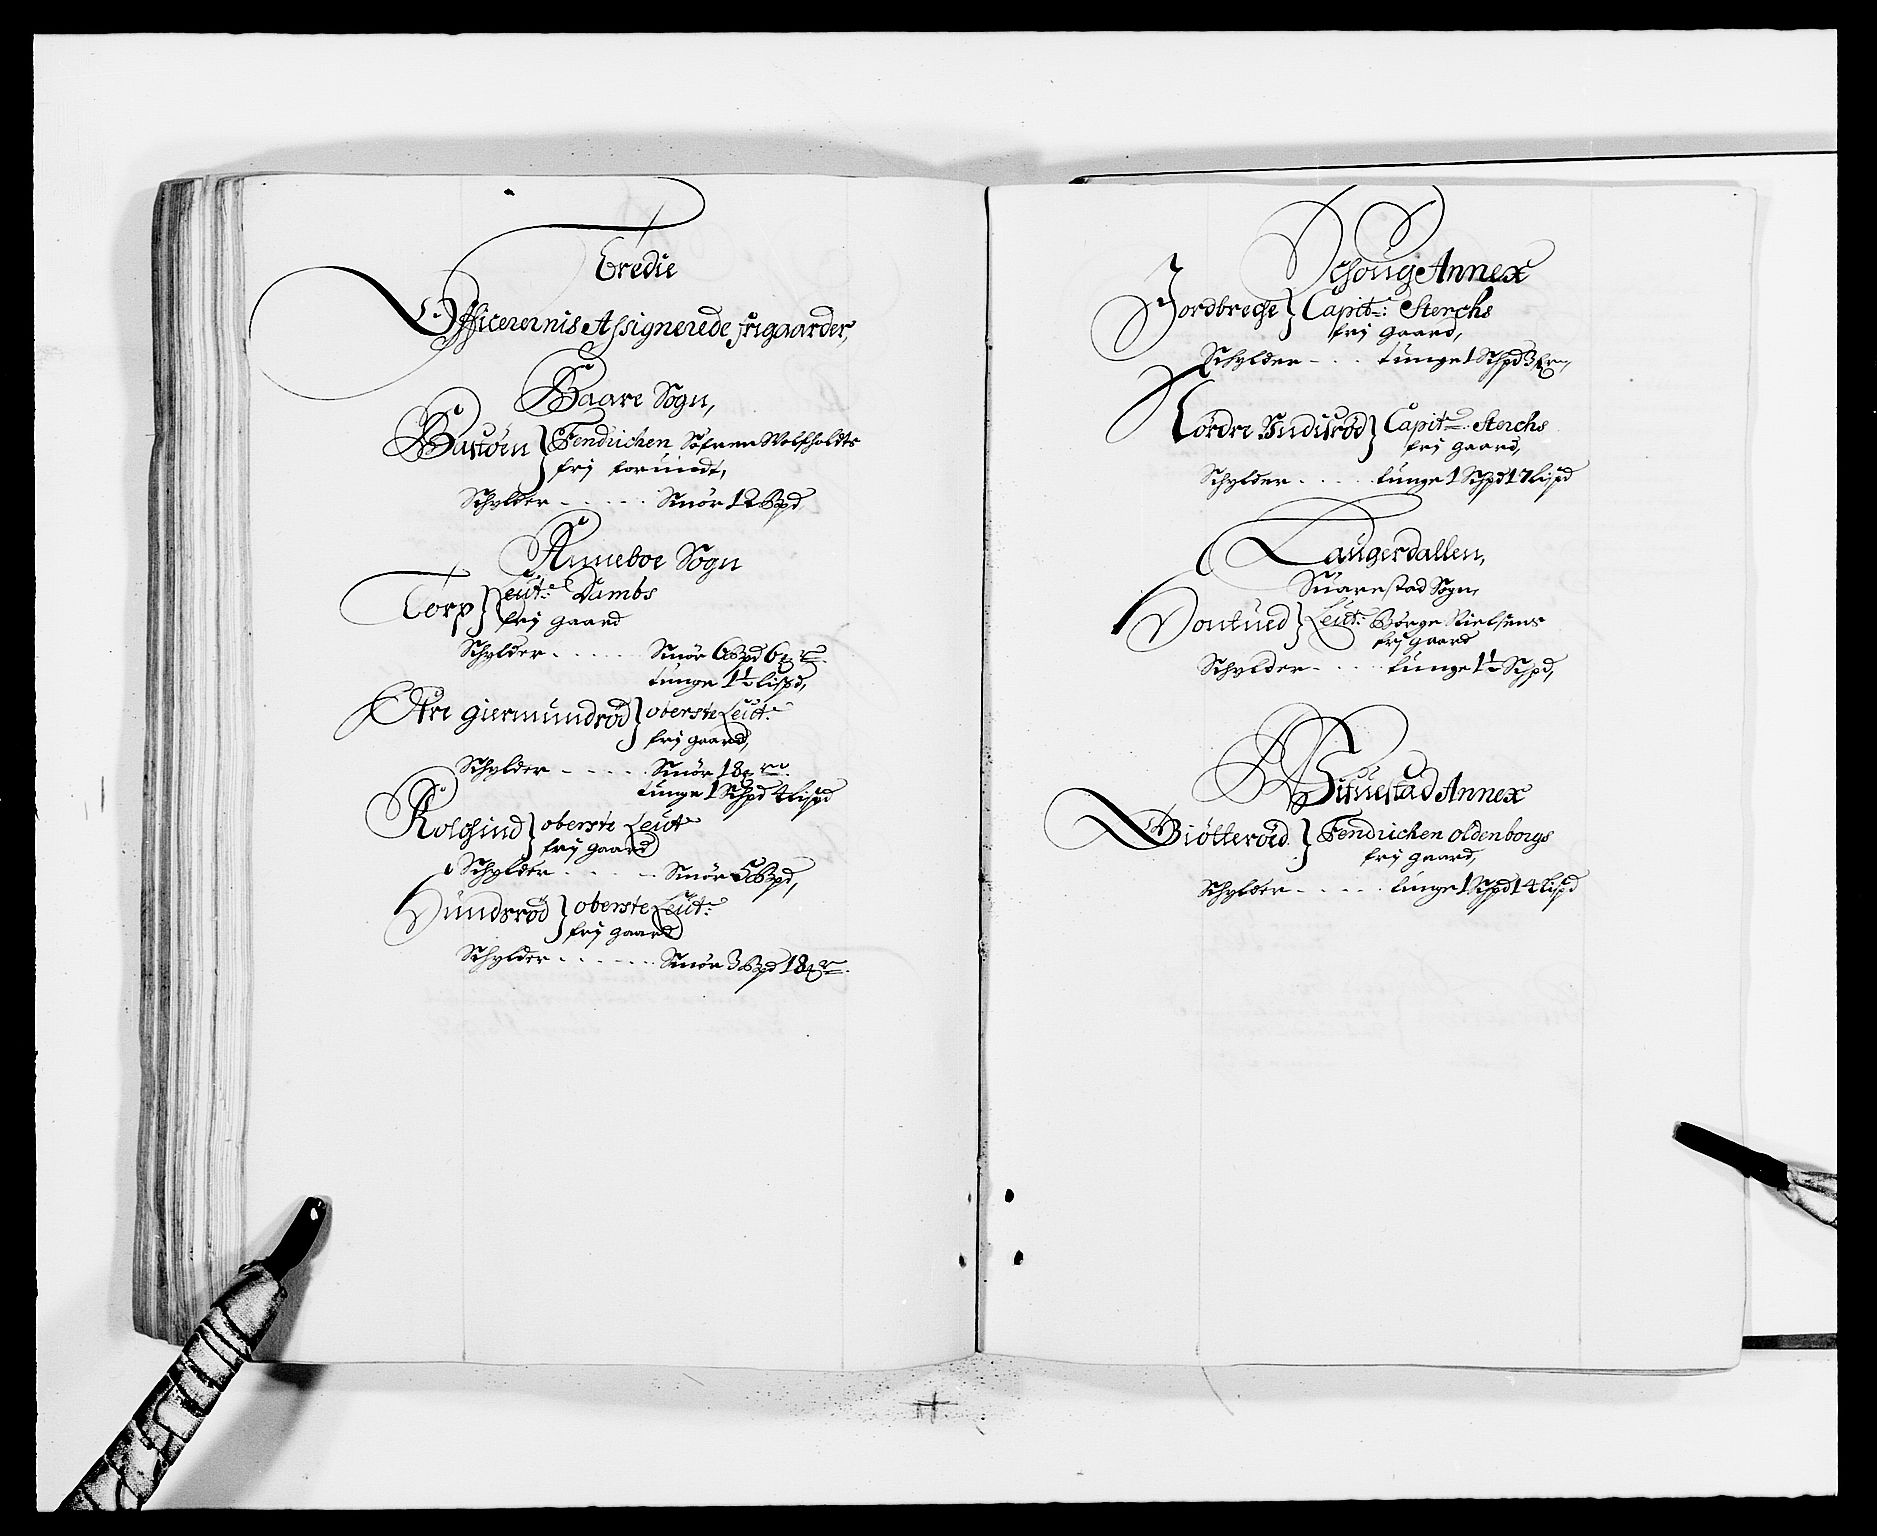 Tredie
Officerernis Assignerede frigaarder,
Baare Sogn,
Bastöen } Fendrichen Söfren Wolfholdts
frij forundt,
Schylder - - - - - Smör 12 Bpd
Anneboe Sogn
Torp } Leut: Dambs
frij gaard
Schylder - - - - - Smör 6 Bpd 6 mr
tunge 1½ lispd,
Öfre giermundröd } oberste Leut:
frij gaard,
Schylder - - - - - Smör 18 mr
tunge 1 Schpd 4 lispd
Rolghind } oberste Leut
frij gaard
Schylder - - - - Smör 5 Bpd,
Hundsröd } oberste Leut:
frij gaard
Schylder - - - - - - Smör 3 Bpd 18 mr
Schoug Annex
Jordbreche } Capit: Sterchs
frij gaard,
Schylder - - - tunge 1 Schpd 3
Nordre Bndisröd } Capit: Sterchs
frij gaard,
Schylder - - - - tunge 1 Schpd 17 lispd
Laugerdallen,
Suarestad Sogn,
Hontued } Leut: Börge Nielsens
frij gaard
Schylder - - - - tunge 1½ Schpd,
Hituestad Annex
Giötteröed } Fendrichen oldenborgs
frij gaard,
Schylder - - - - tunge 1 Schpd 14 lispd